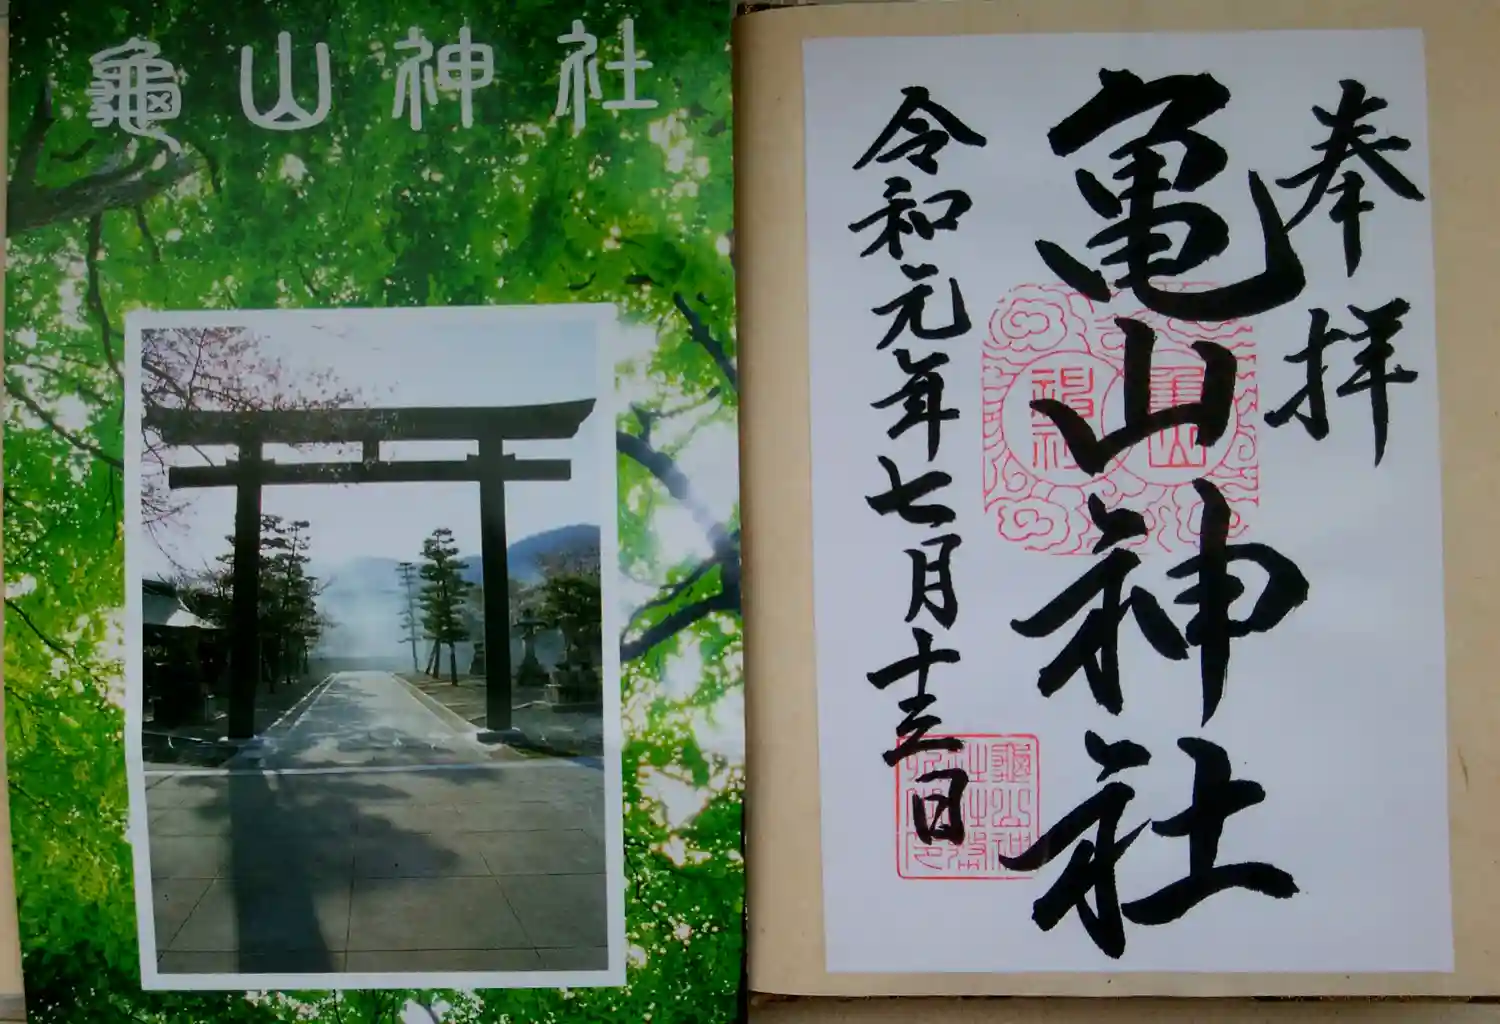 龜山神社
奉拝
亀山神社
令和元年七月十三日
亀山
神社